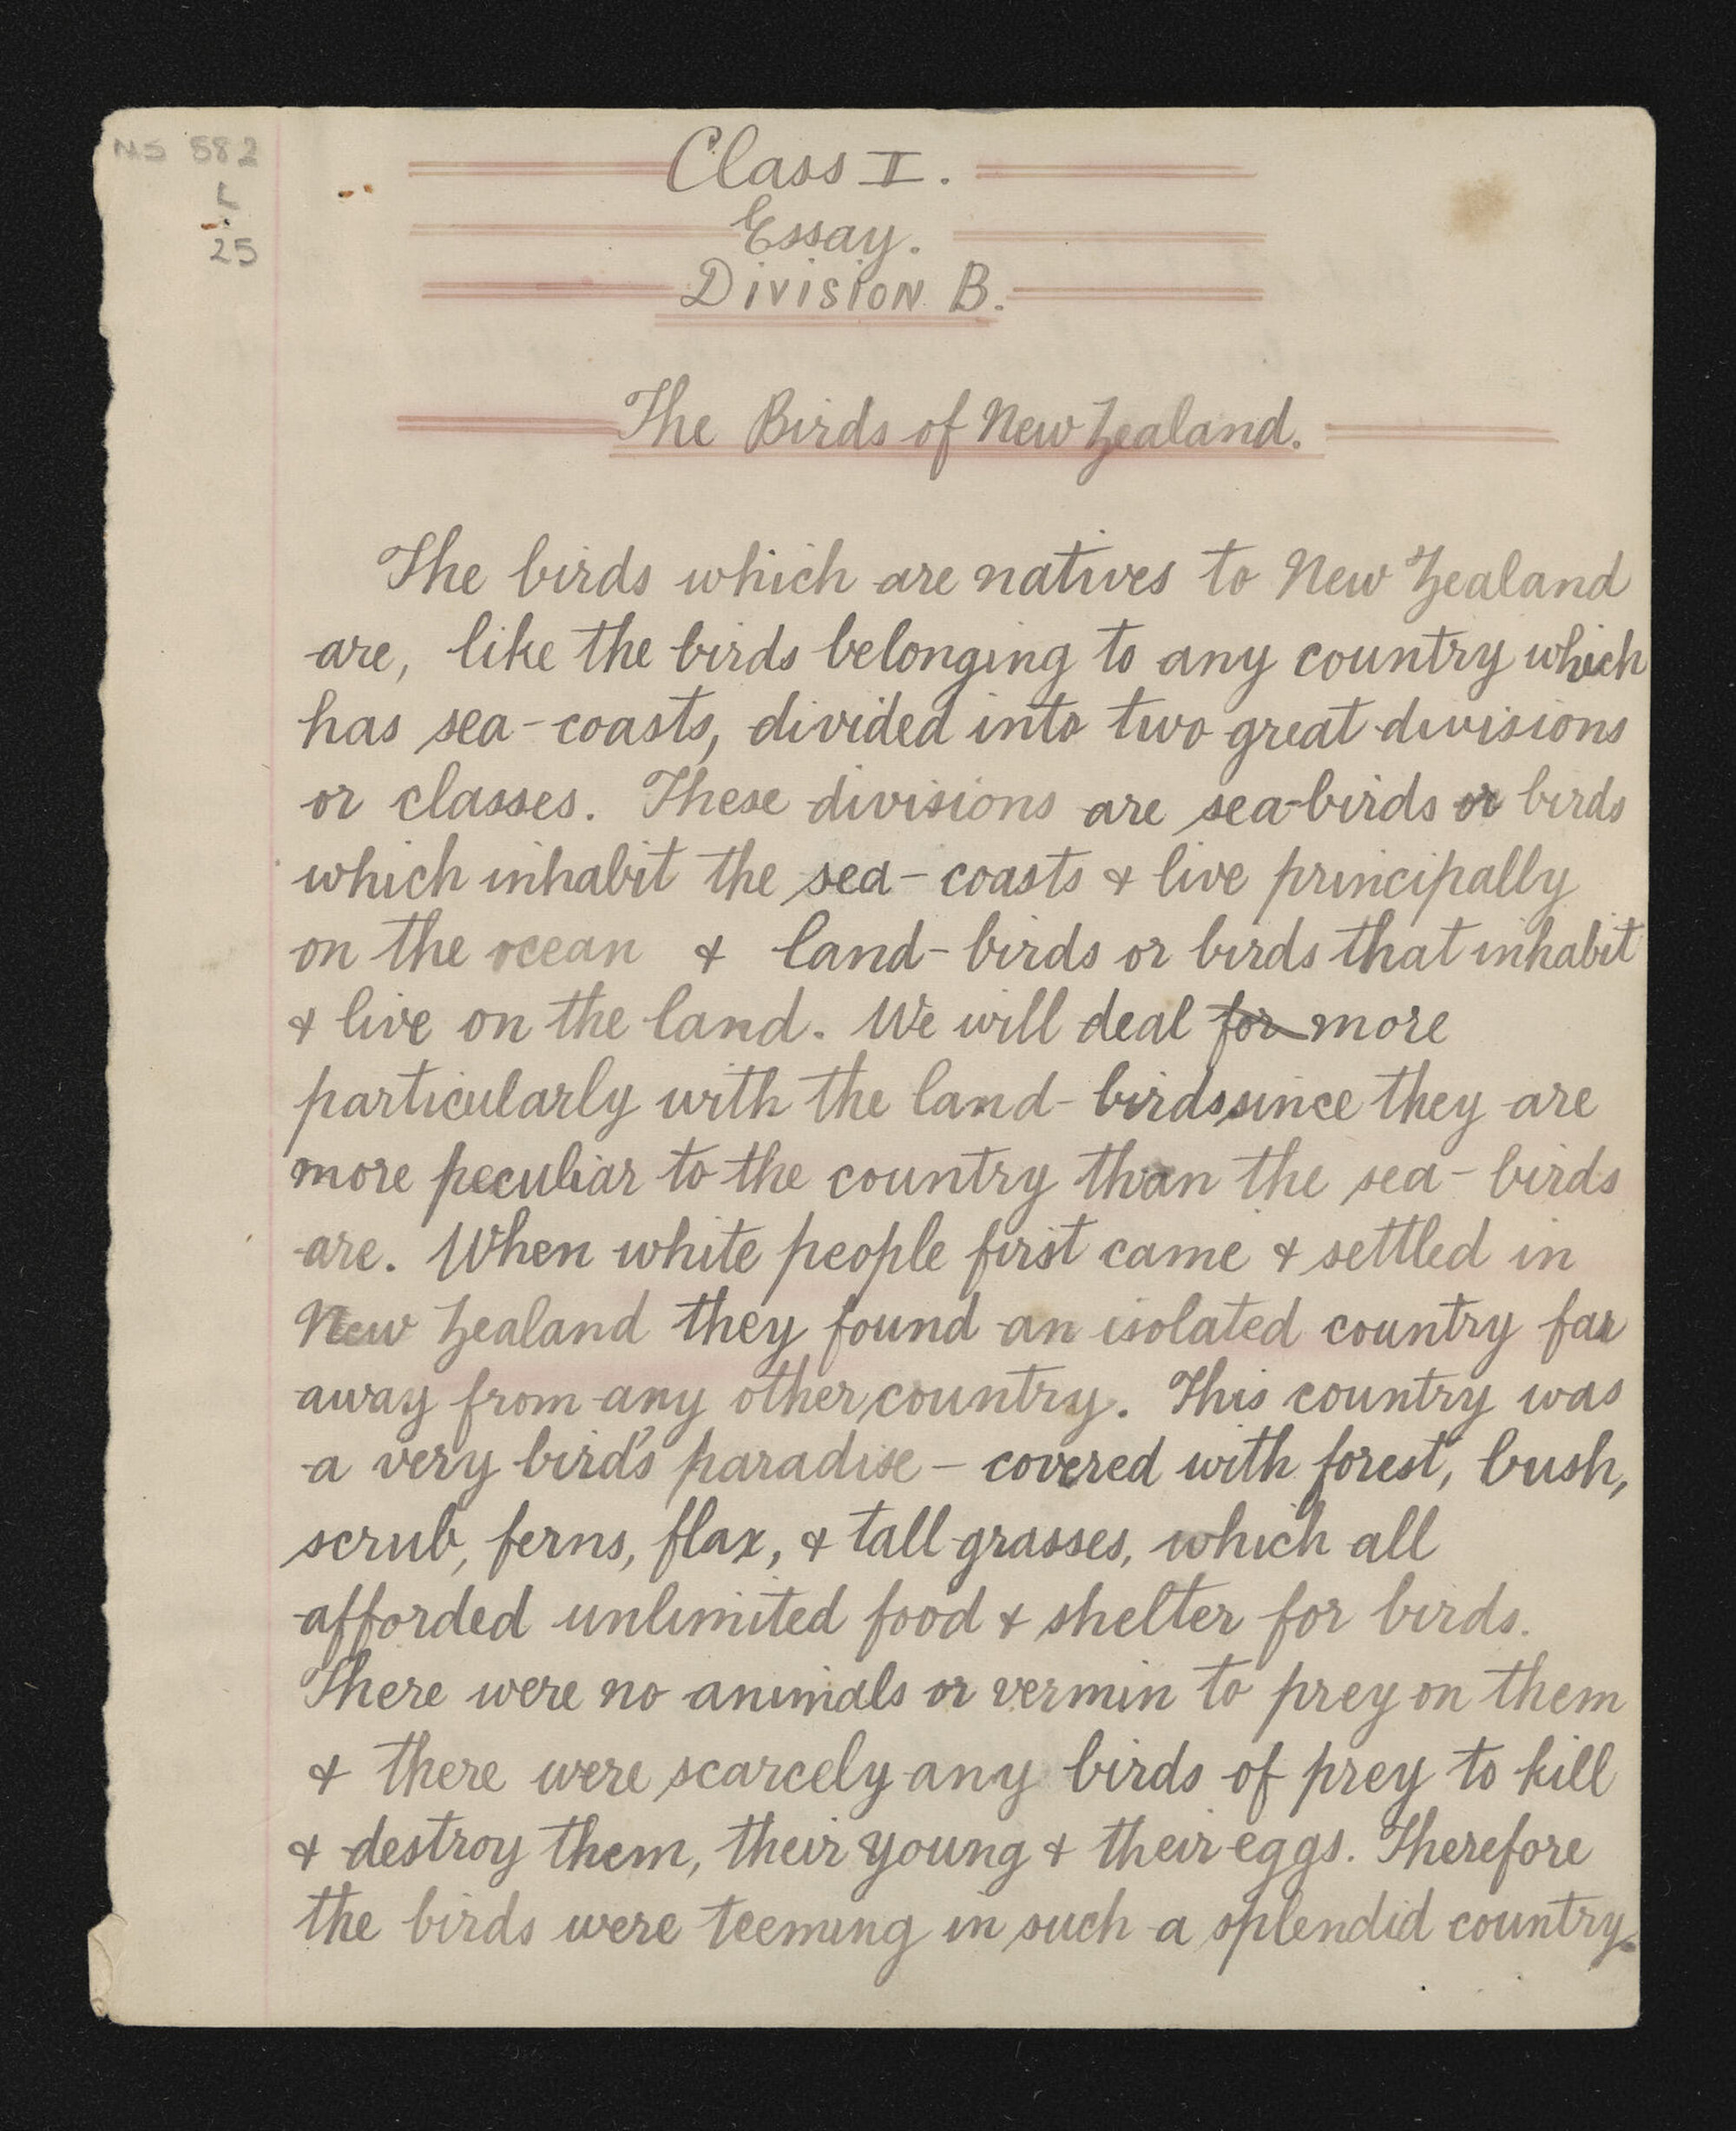 MS 582
L
25
Class I.
Essay.
Division B.
The Birds of New Zealand.
The birds which are natives to New Zealand
are, like the birds belonging to any country which
has sea-coasts, divided into two great divisions
or classes. These divisions are sea-birds or birds
which inhabit the sea-coasts & live principally
on the ocean & land-birds or birds that inhabit
& live on the land. We will deal for more
particularly with the land-birds since they are
more peculiar to the country than the sea-birds
are. When white people first came & settled in
New Zealand they found an isolated country far
away from any other country. This country was
a very bird's paradise - covered with forest, bush,
scrub, ferns, flax, & tall grasses, which all
afforded unlimited food & shelter for birds.
There were no animals or vermin to prey on them
& there were scarcely any birds of prey to kill
& destroy them, their young & their eggs. Therefore
the birds were teeming in such a splendid country.